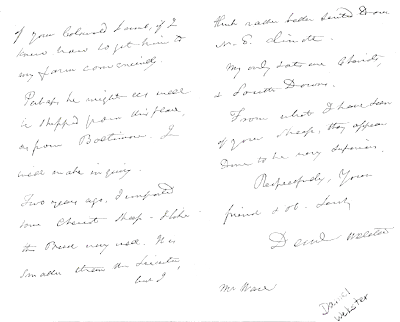 of your Colound Lamb, if I
know how to get him to
my farm conveniently.
Perhaps he might as well
be shipped from this place,
as from Baltimore. I
will make inquiry.
Two years ago, I imported
some Cheviot Sheep - I like
the Breed very well. It is
smaller than the Leicester
but I
think rather better suited to our
N. E. climate.
My only Lots are Cheviots,
& South Downs.
From what I have seen
of your Sheep, they appear
to me to be very superior.
Respectfully, Your
friend & ob. Servt
Danl Webster
Mr Ware
Daniel
Webster